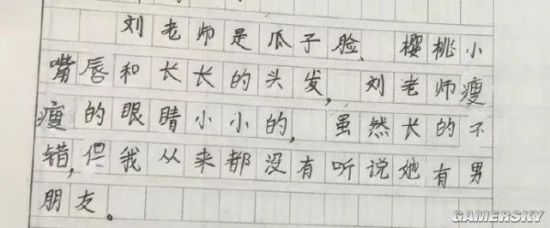 刘老师是瓜子脸、樱桃小
嘴唇和长长的头发，刘老师瘦
瘦的眼睛小小的，虽然长的不
错，但我从来都没有听说她有男
朋友。
GAMERSKY